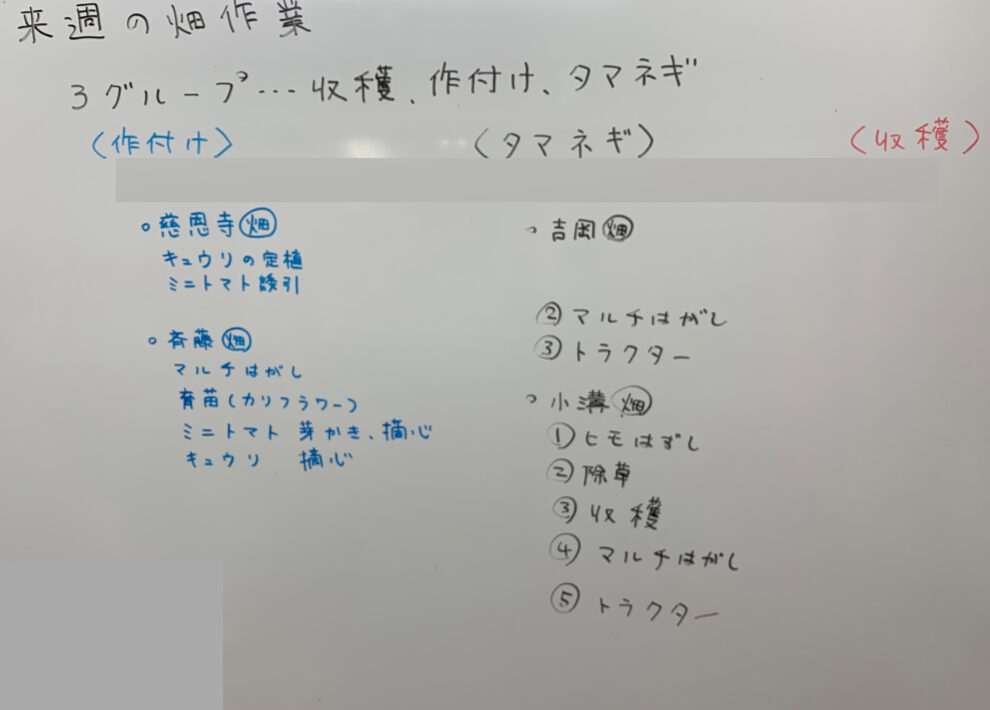 来週の畑作業
3グループ…収穫、作付け、タマネギ
(作付け)
(タマネギ)
(収穫)
○慈恩寺畑
キュウリの定植
ミニトマト誘引
○斉藤畑
マルチはがし
育苗(カリフラワー)
ミニトマト 芽かき、摘心
キュウリ 摘心
○吉岡畑
②マルチはがし
③トラクター
○小溝畑
①ヒモはずし
②除草
③収穫
④マルチはがし
⑤トラクター